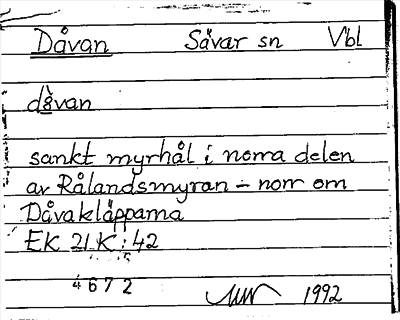 Dåvan Sävar sn Vbl
dåvan
sankt myrhål i norra delen
av Rålandsmyran - norr om
Dåvakläpparna
EK 21 K : 42
4672
1992